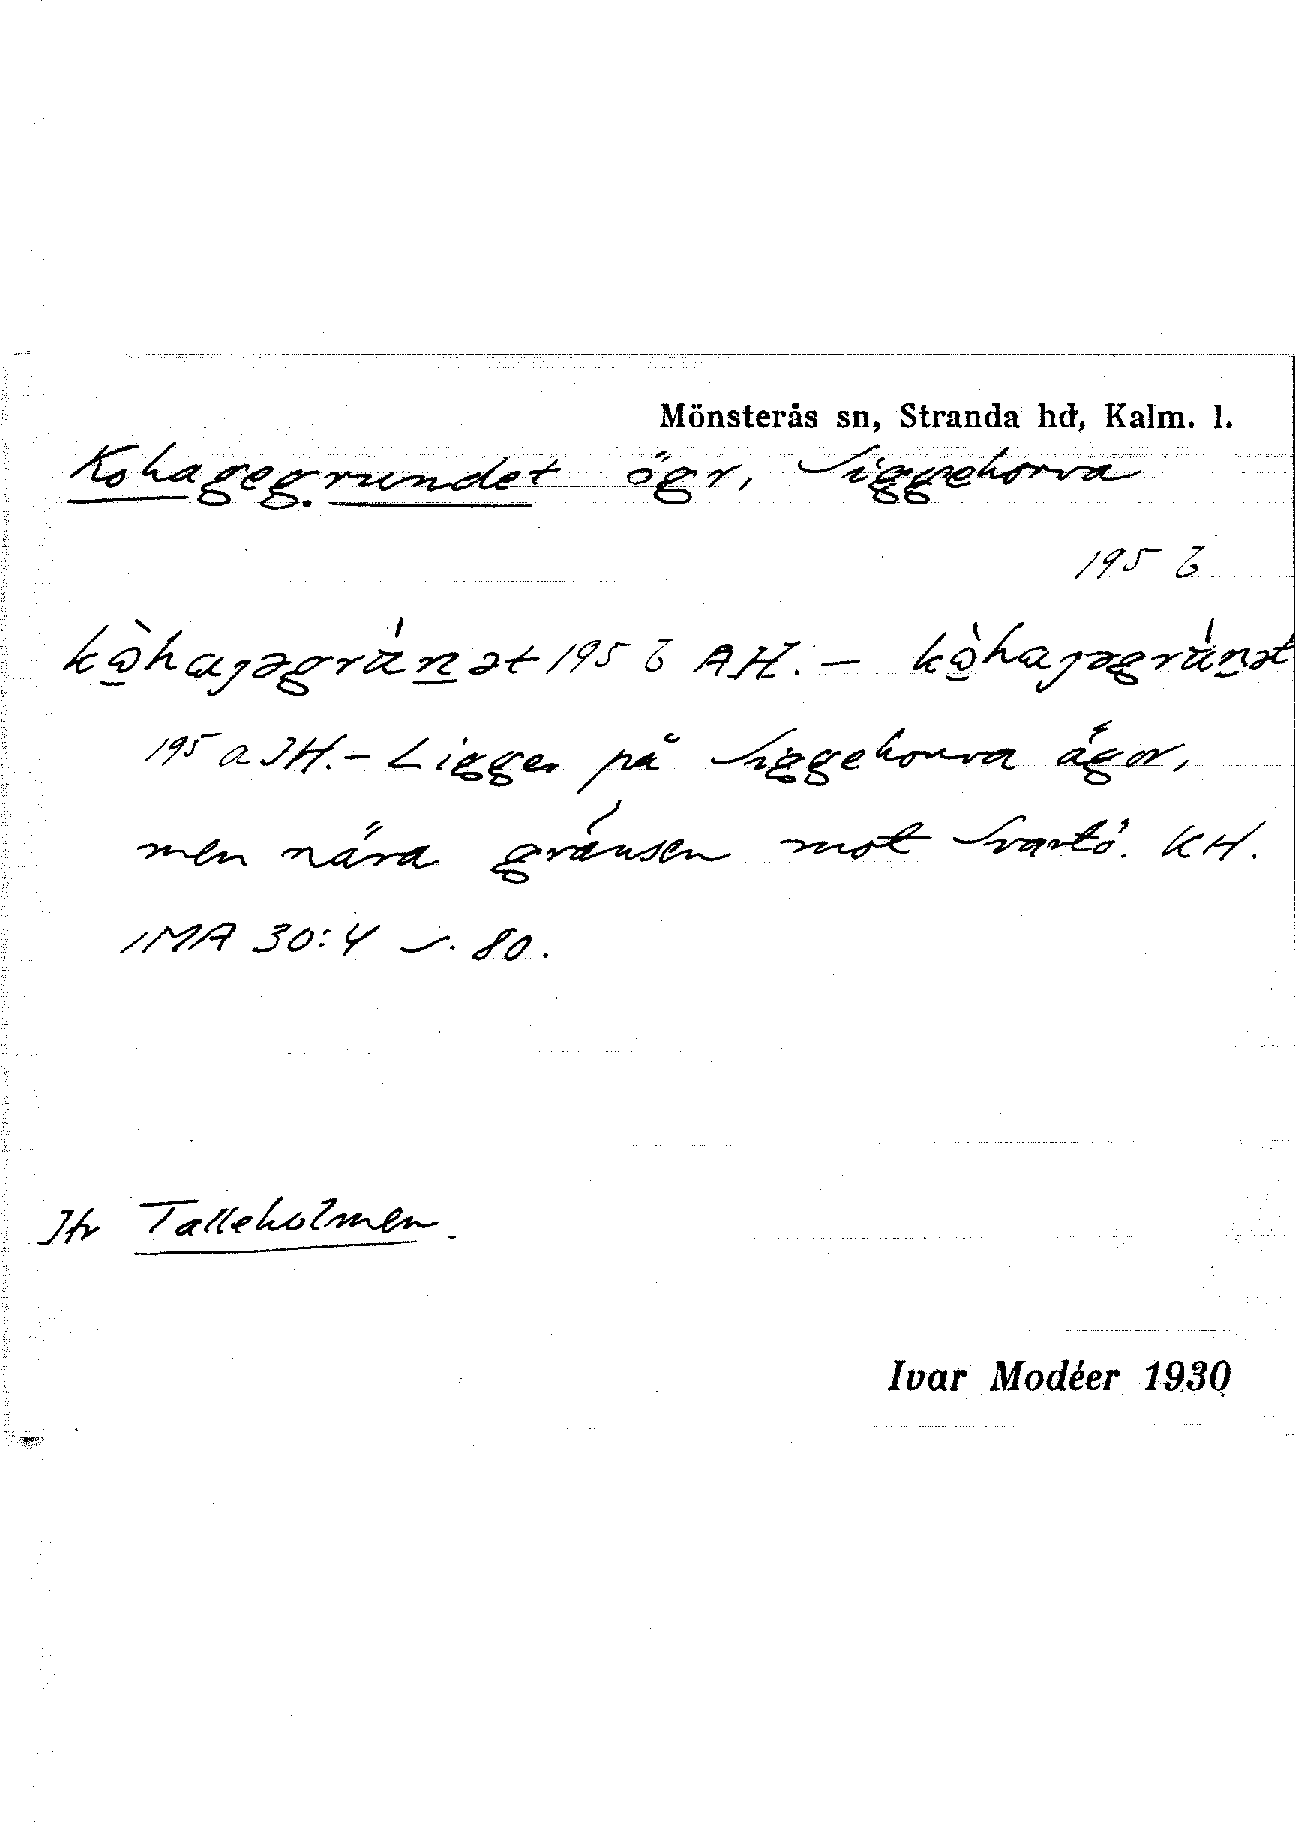 Mönsterås sn, Stranda hd, Kalm. l.
Kohagegrundet ögr, Siggehorva
195 b
195 b AH. –
195 a JH. – Ligger på Siggehorva ägor,
men nära gränsen mot Svartö. KH.
IMA 30:4 s. 80.
Jfr Talleholmen.
Ivar Modéer 1930